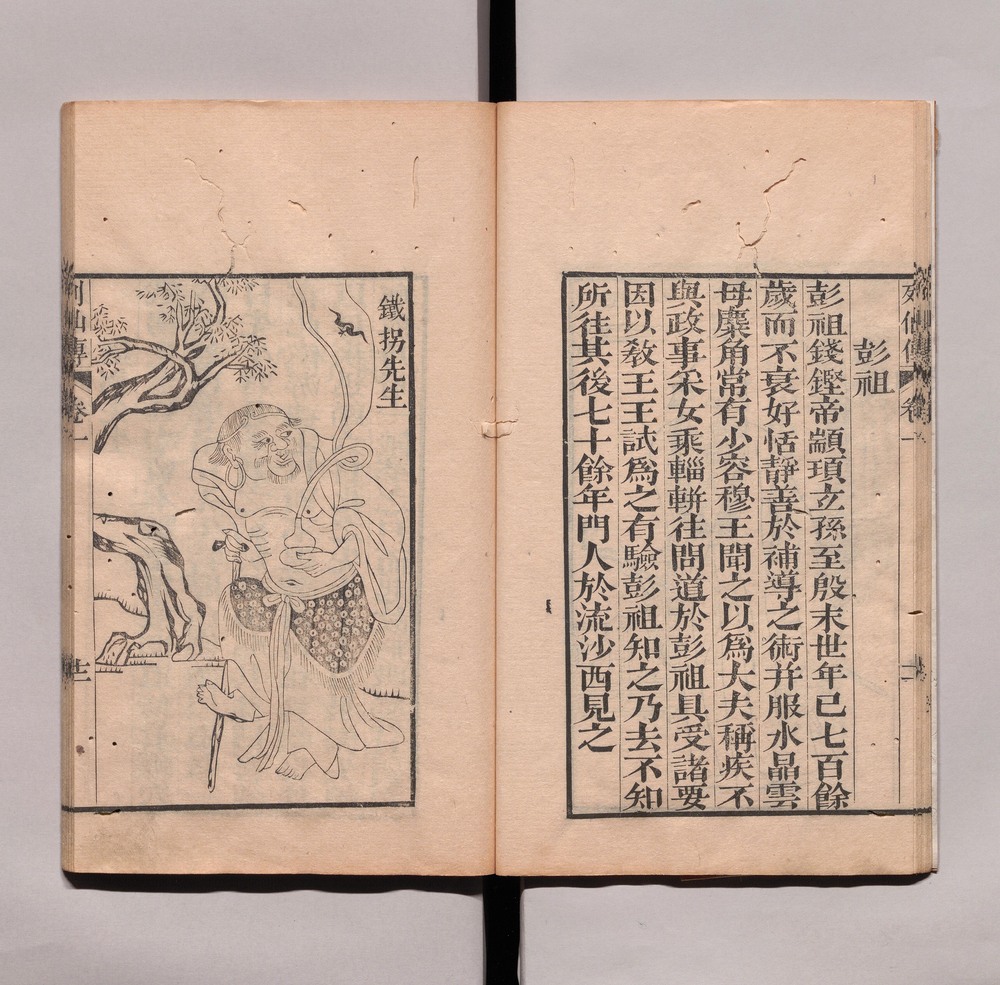 列仙傳 卷一
彭祖
彭祖錢鏗帝顓頊立孫至殷末世年已七百餘
歲而不衰好恬靜善於補導之術并服水晶雲
母麋角常有少容穆王聞之以爲大夫稱疾不
與政事采女乘輜軿往問道於彭祖具受諸要
因以敎王王試爲之有驗彭祖知之乃去不知
所往其後七十餘年門人於流沙西見之
鐵拐先生
列仙傳 卷一